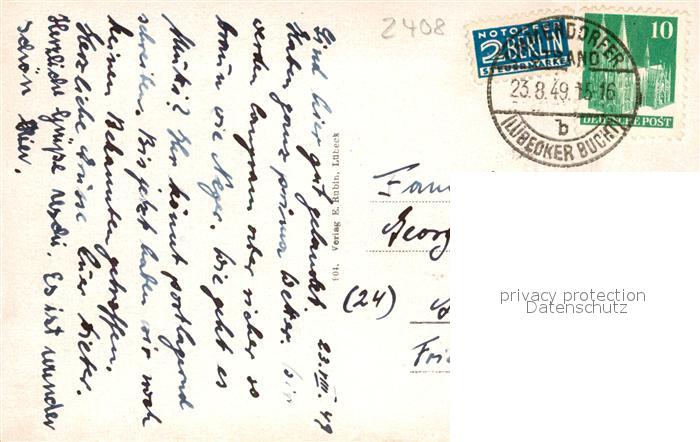 2408
NOTOPFER
2 BERLIN
STEUERMARKE
10
DEUTSCHE POST
TIMMENDORFER
STRAND
23.8.49.15-16
b
(LÜBECKER BUCHT)
23. VIII. 49
Sind hier gut gelandet
Haben ganz prima Wetter. Wir
werden langsam aber sicher so
braun wie Neger. Wie geht es
Mutti? Ihr könnt postlagernd
schreiben. Bis jetzt haben wir noch
keinen Bekannten getroffen.
Herzliche Grüsse Euer Dieter.
Herzliche Grüße Uschi. Es ist wunder
schön hier.
404. Verlag E. Rubin, Lübeck
Fam
Georg
(24)
Fri
privacy protection
Datenschutz